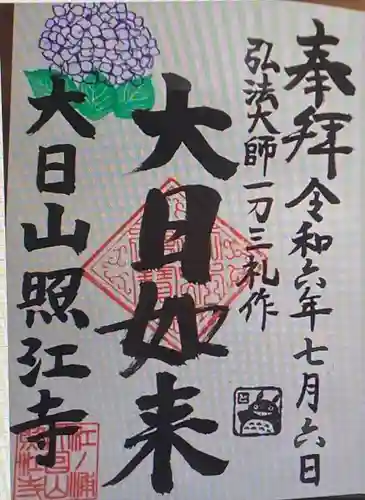 奉拝 令和六年七月六日
弘法大師 一刀三礼作
大日如来
大日山照江寺
江ノ浦